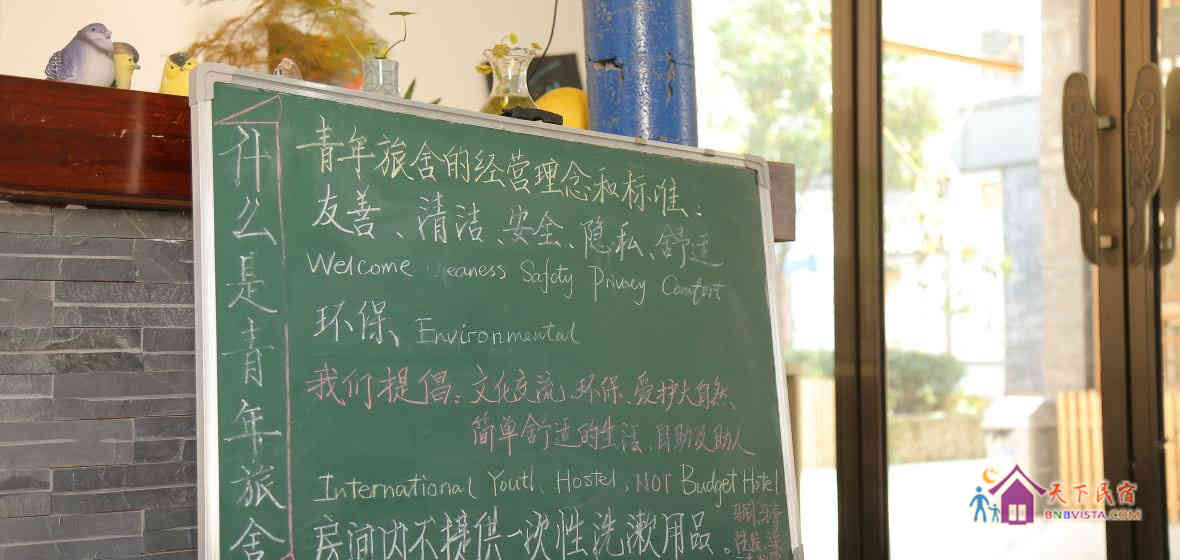 什么是青年旅舍
青年旅舍的经营理念和标准：
友善、清洁、安全、隐私、舒适
Welcome eaness Safety Privacy Comfort
环保、Environmental
我们提倡：文化交流、环保、爱护大自然、
简单舒适的生活、自助及助人
International Youth Hostel, NOT Budget Hotel
房间内不提供一次性洗漱用品。
天下民宿
BNBVISTA.COM